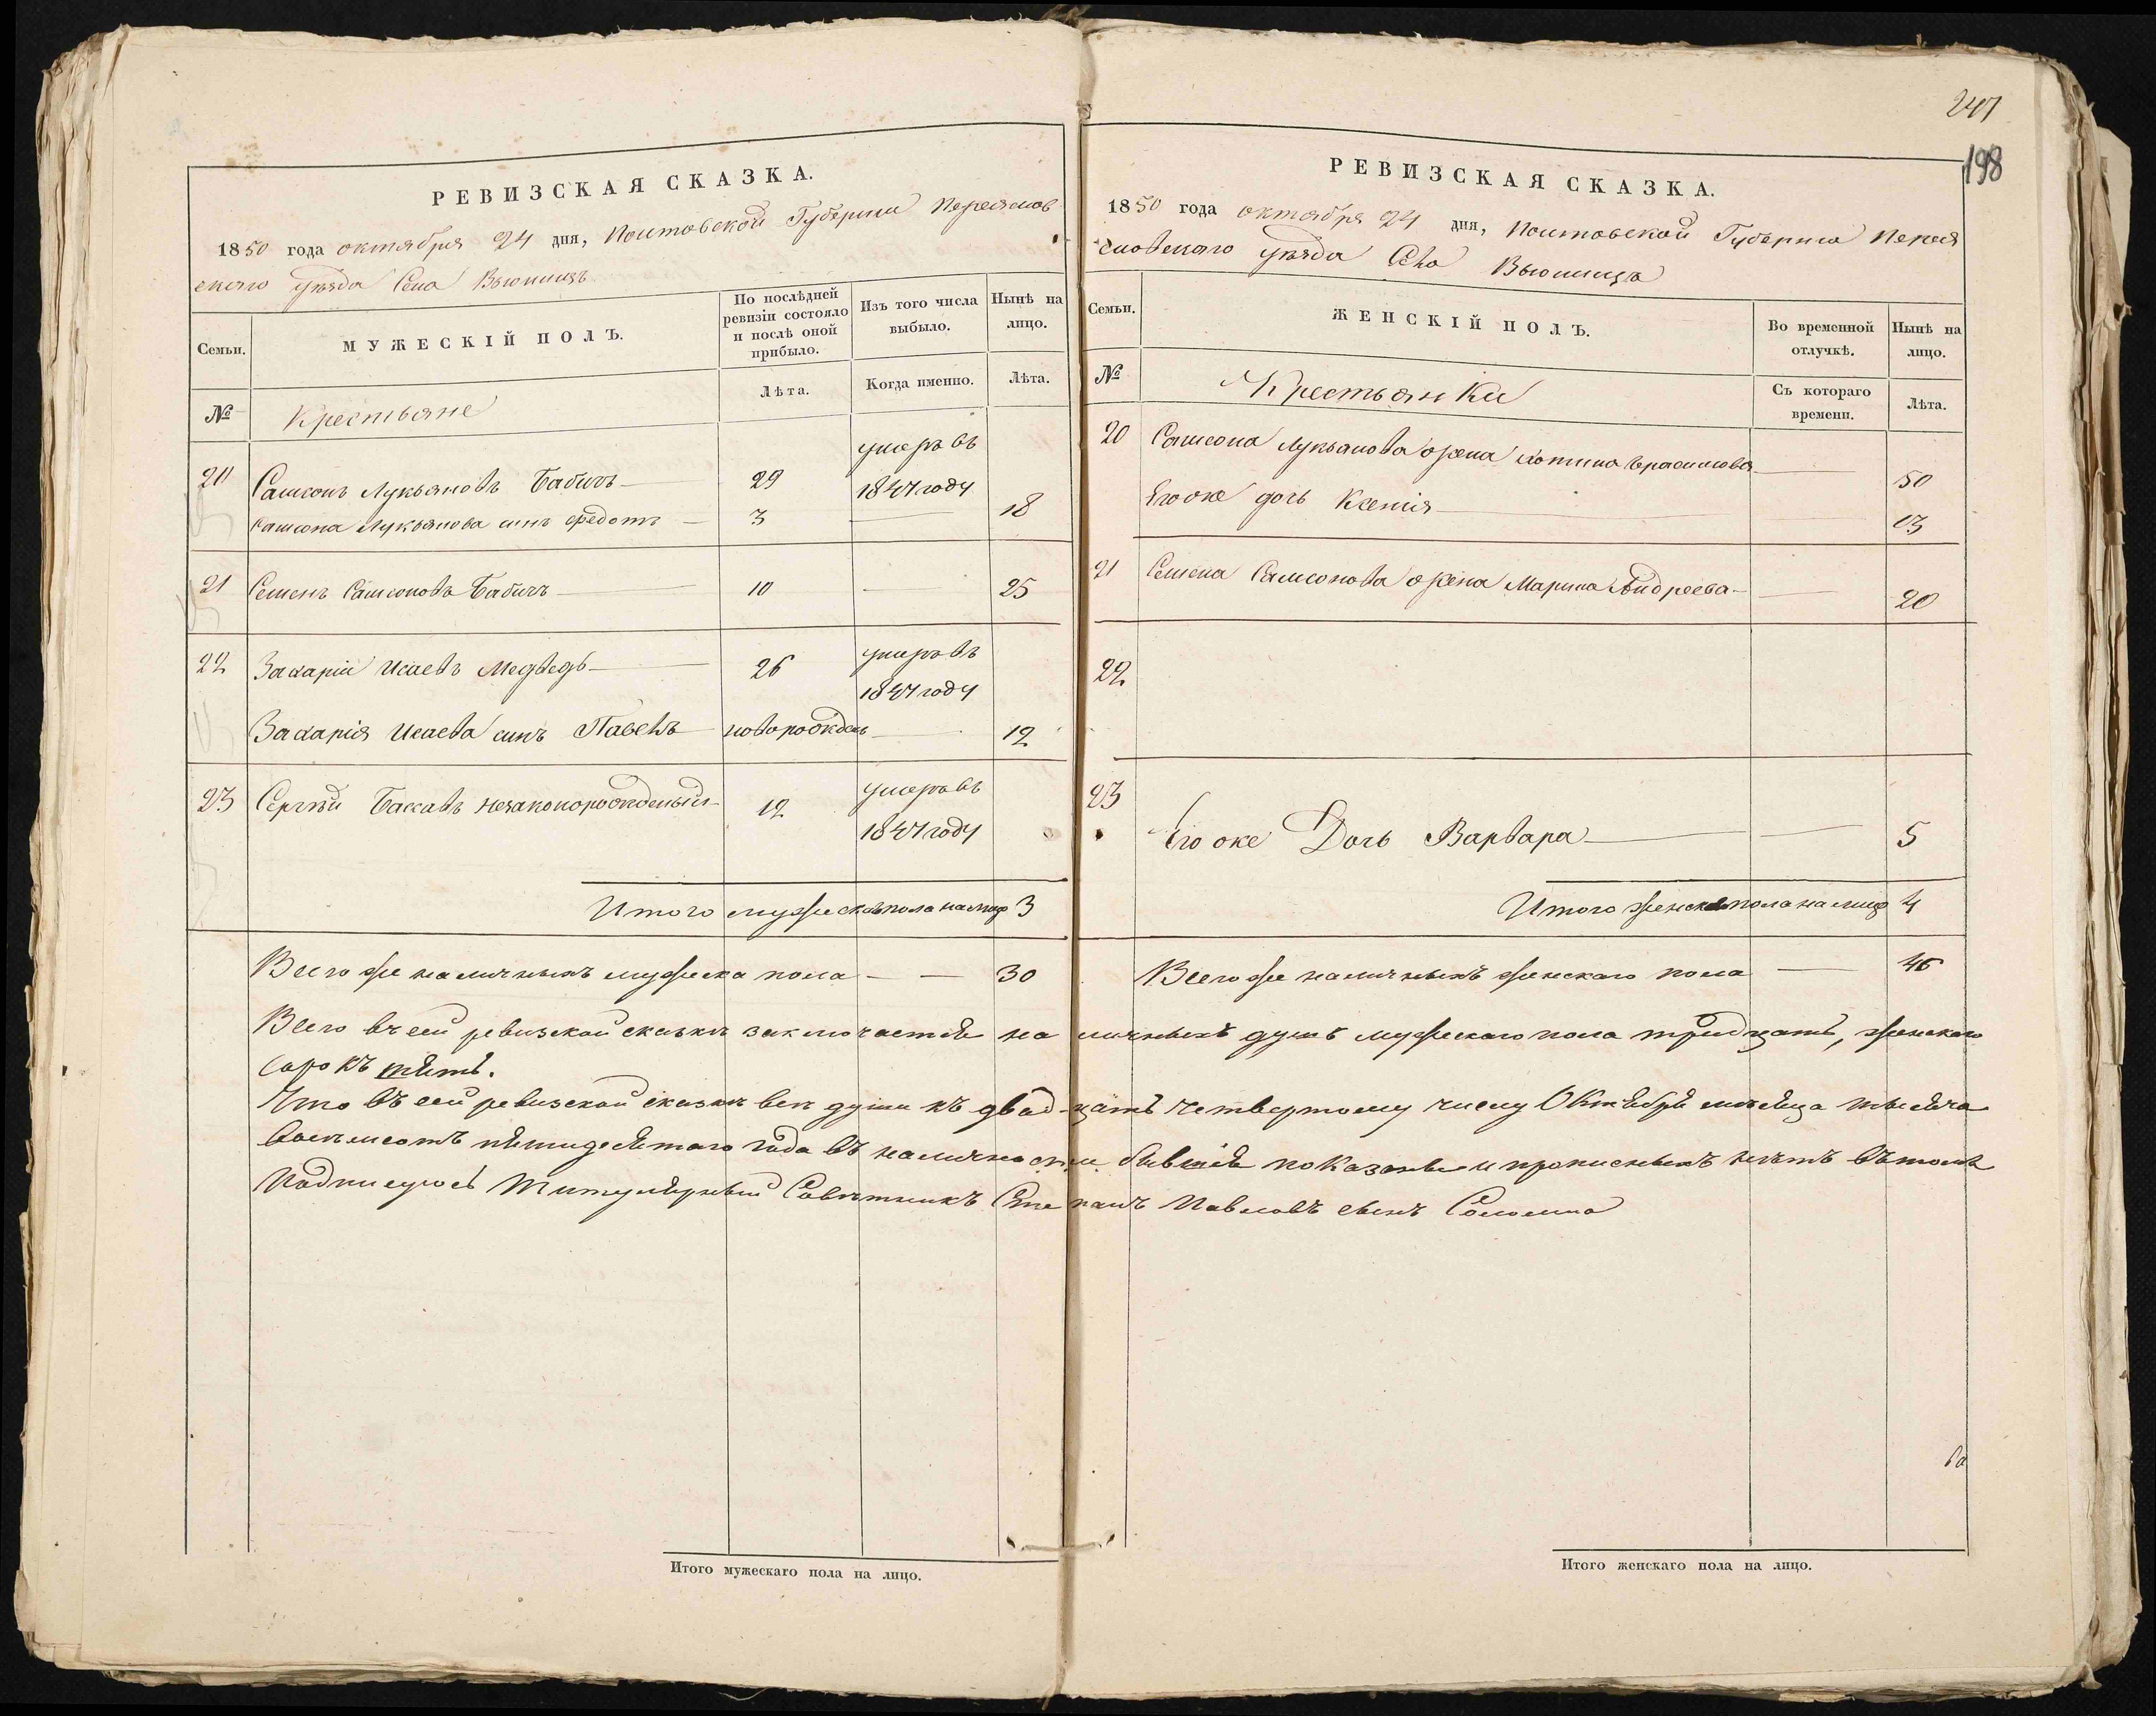 РЕВИЗСКАЯ СКАЗКА.
1850 года октября 24 дня, Полтовской Губернии Переяслов
ского уѣзда Села Вьюнищъ
Семьи.
МУЖЕСКІЙ ПОЛЪ.
По послѣдней ревизіи состояло и послѣ оной прибыло.
Изъ того числа выбыло.
Нынѣ на лицо.
Лѣта.
Когда именно.
Лѣта.
№
Крестьяне
20 Самсонъ Лукьяновъ Бабичъ 29 умеръ въ 1847 году
Самсона Лукьянова сынъ Федотъ 3 18
21 Семенъ Самсоновъ Бабичъ 10 25
22 Захарій Исаевъ Медведь 26 умеръ въ 1847 году
Захарія Исаева сынъ Павелъ новорожденъ 12
23 Сергѣй Бассавъ незаконорожденый 12 умеръ въ 1847 году
Итого мужеска пола на лицо 3
Всего же наличныхъ мужеска пола 30
247
198
РЕВИЗСКАЯ СКАЗКА.
1850 года октября 24 дня, Полтовской Губернии Перея
словского уѣзда Села Вьюнища
Семьи.
ЖЕНСКІЙ ПОЛЪ.
Во временной отлучкѣ.
Нынѣ на лицо.
№
Крестьянки
Съ котораго времени.
Лѣта.
20 Самсона Лукьянова жена 50
Его же дочь Ксенія 13
21 Семена Самсонова жена Марина Андреева 20
22
23
Его же Дочь Варвара 5
Итого женска пола на лицо 4
Всего же наличныхъ женскаго пола 45
Всего въ сей ревизской сказкѣ заключается наличныхъ душъ мужескаго пола тридцать, женскаго
сорокъ пять.
Что въ сей ревизской сказкѣ всѣ души къ двадцать четвертому числу Октября мѣсяца тысяча
восемсотъ пятидесятаго года въ наличности бывшія показаны и прописныхъ нѣтъ въ томъ
Подписуюсь Титулярный Совѣтникъ Степанъ Павловъ сынъ Соломка
Итого мужескаго пола на лицо.
Итого женскаго пола на лицо.